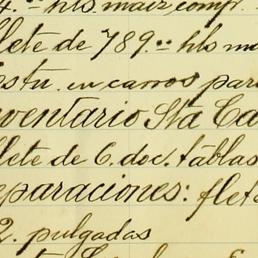 4. hls maiz compr.
lete de 789.00 hls ma
estu. en carros para
nventario Sta Ca
lete de 6. doc. tablas
eparaciones: flete
2. pulgadas